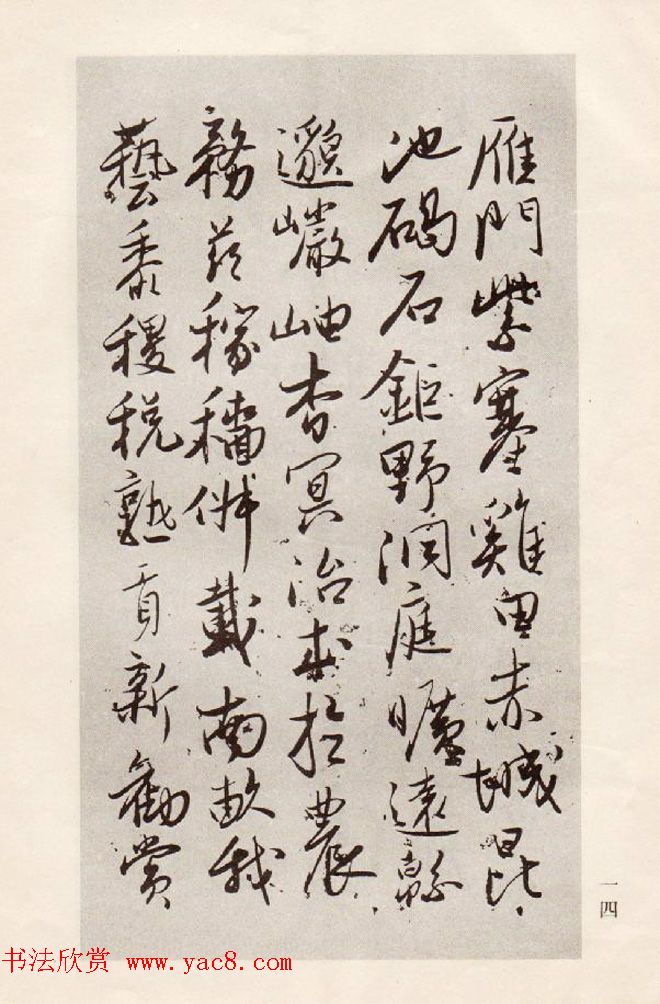 雁門紫塞雞田赤城昆
池碣石鉅野洞庭曠遠緜
邈巗岫杳冥治本於農
務茲稼穡俶載南畝我
藝黍稷稅熟貢新勸賞
一四
书法欣赏 www.yac8.com